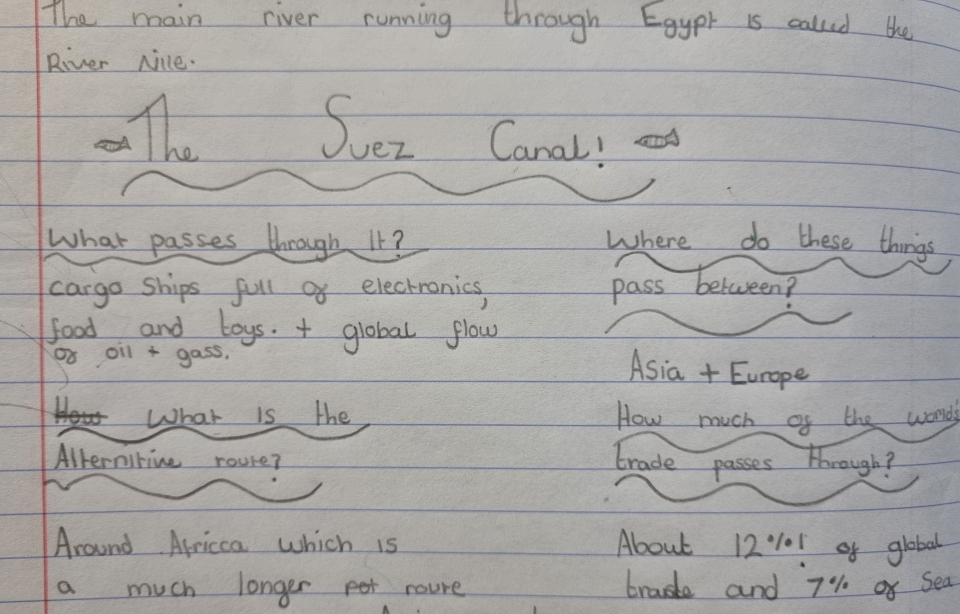 The main river running through Egypt is called the
River Nile.
The Suez Canal!
What passes through It?
cargo Ships full of electronics,
food and toys. + global flow
of oil + gass.
How What Is the
Alternitive route?
Around Africca which is
a much longer pot route
Where do these things
pass between?
Asia + Europe
How much of the worlds
trade passes through?
About 12%! of global
trade and 7% of Sea